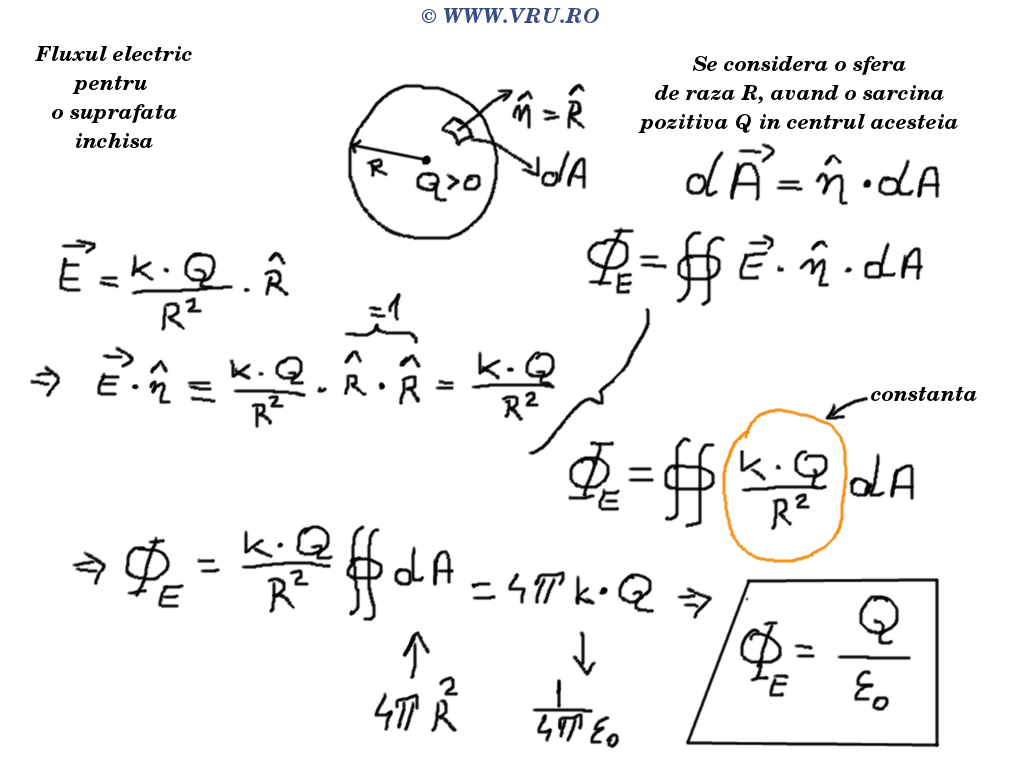 © WWW.VRU.RO
Fluxul electric
pentru
o suprafata
inchisa
Se considera o sfera
de raza R, avand o sarcina
pozitiva Q in centrul acesteia
n̂ = R̂
dA
R
Q>0
dA⃗ = n̂ · dA
Φ_E = ∯ E⃗ · n̂ · dA
E⃗ = k·Q/R² · R̂
=1
⇒ E⃗ · n̂ = k·Q/R² · R̂ · R̂ = k·Q/R²
constanta
Φ_E = ∯ k·Q/R² dA
⇒ Φ_E = k·Q/R² ∯ dA = 4π k·Q ⇒
4π R²
1/4π ε₀
Φ_E = Q/ε₀